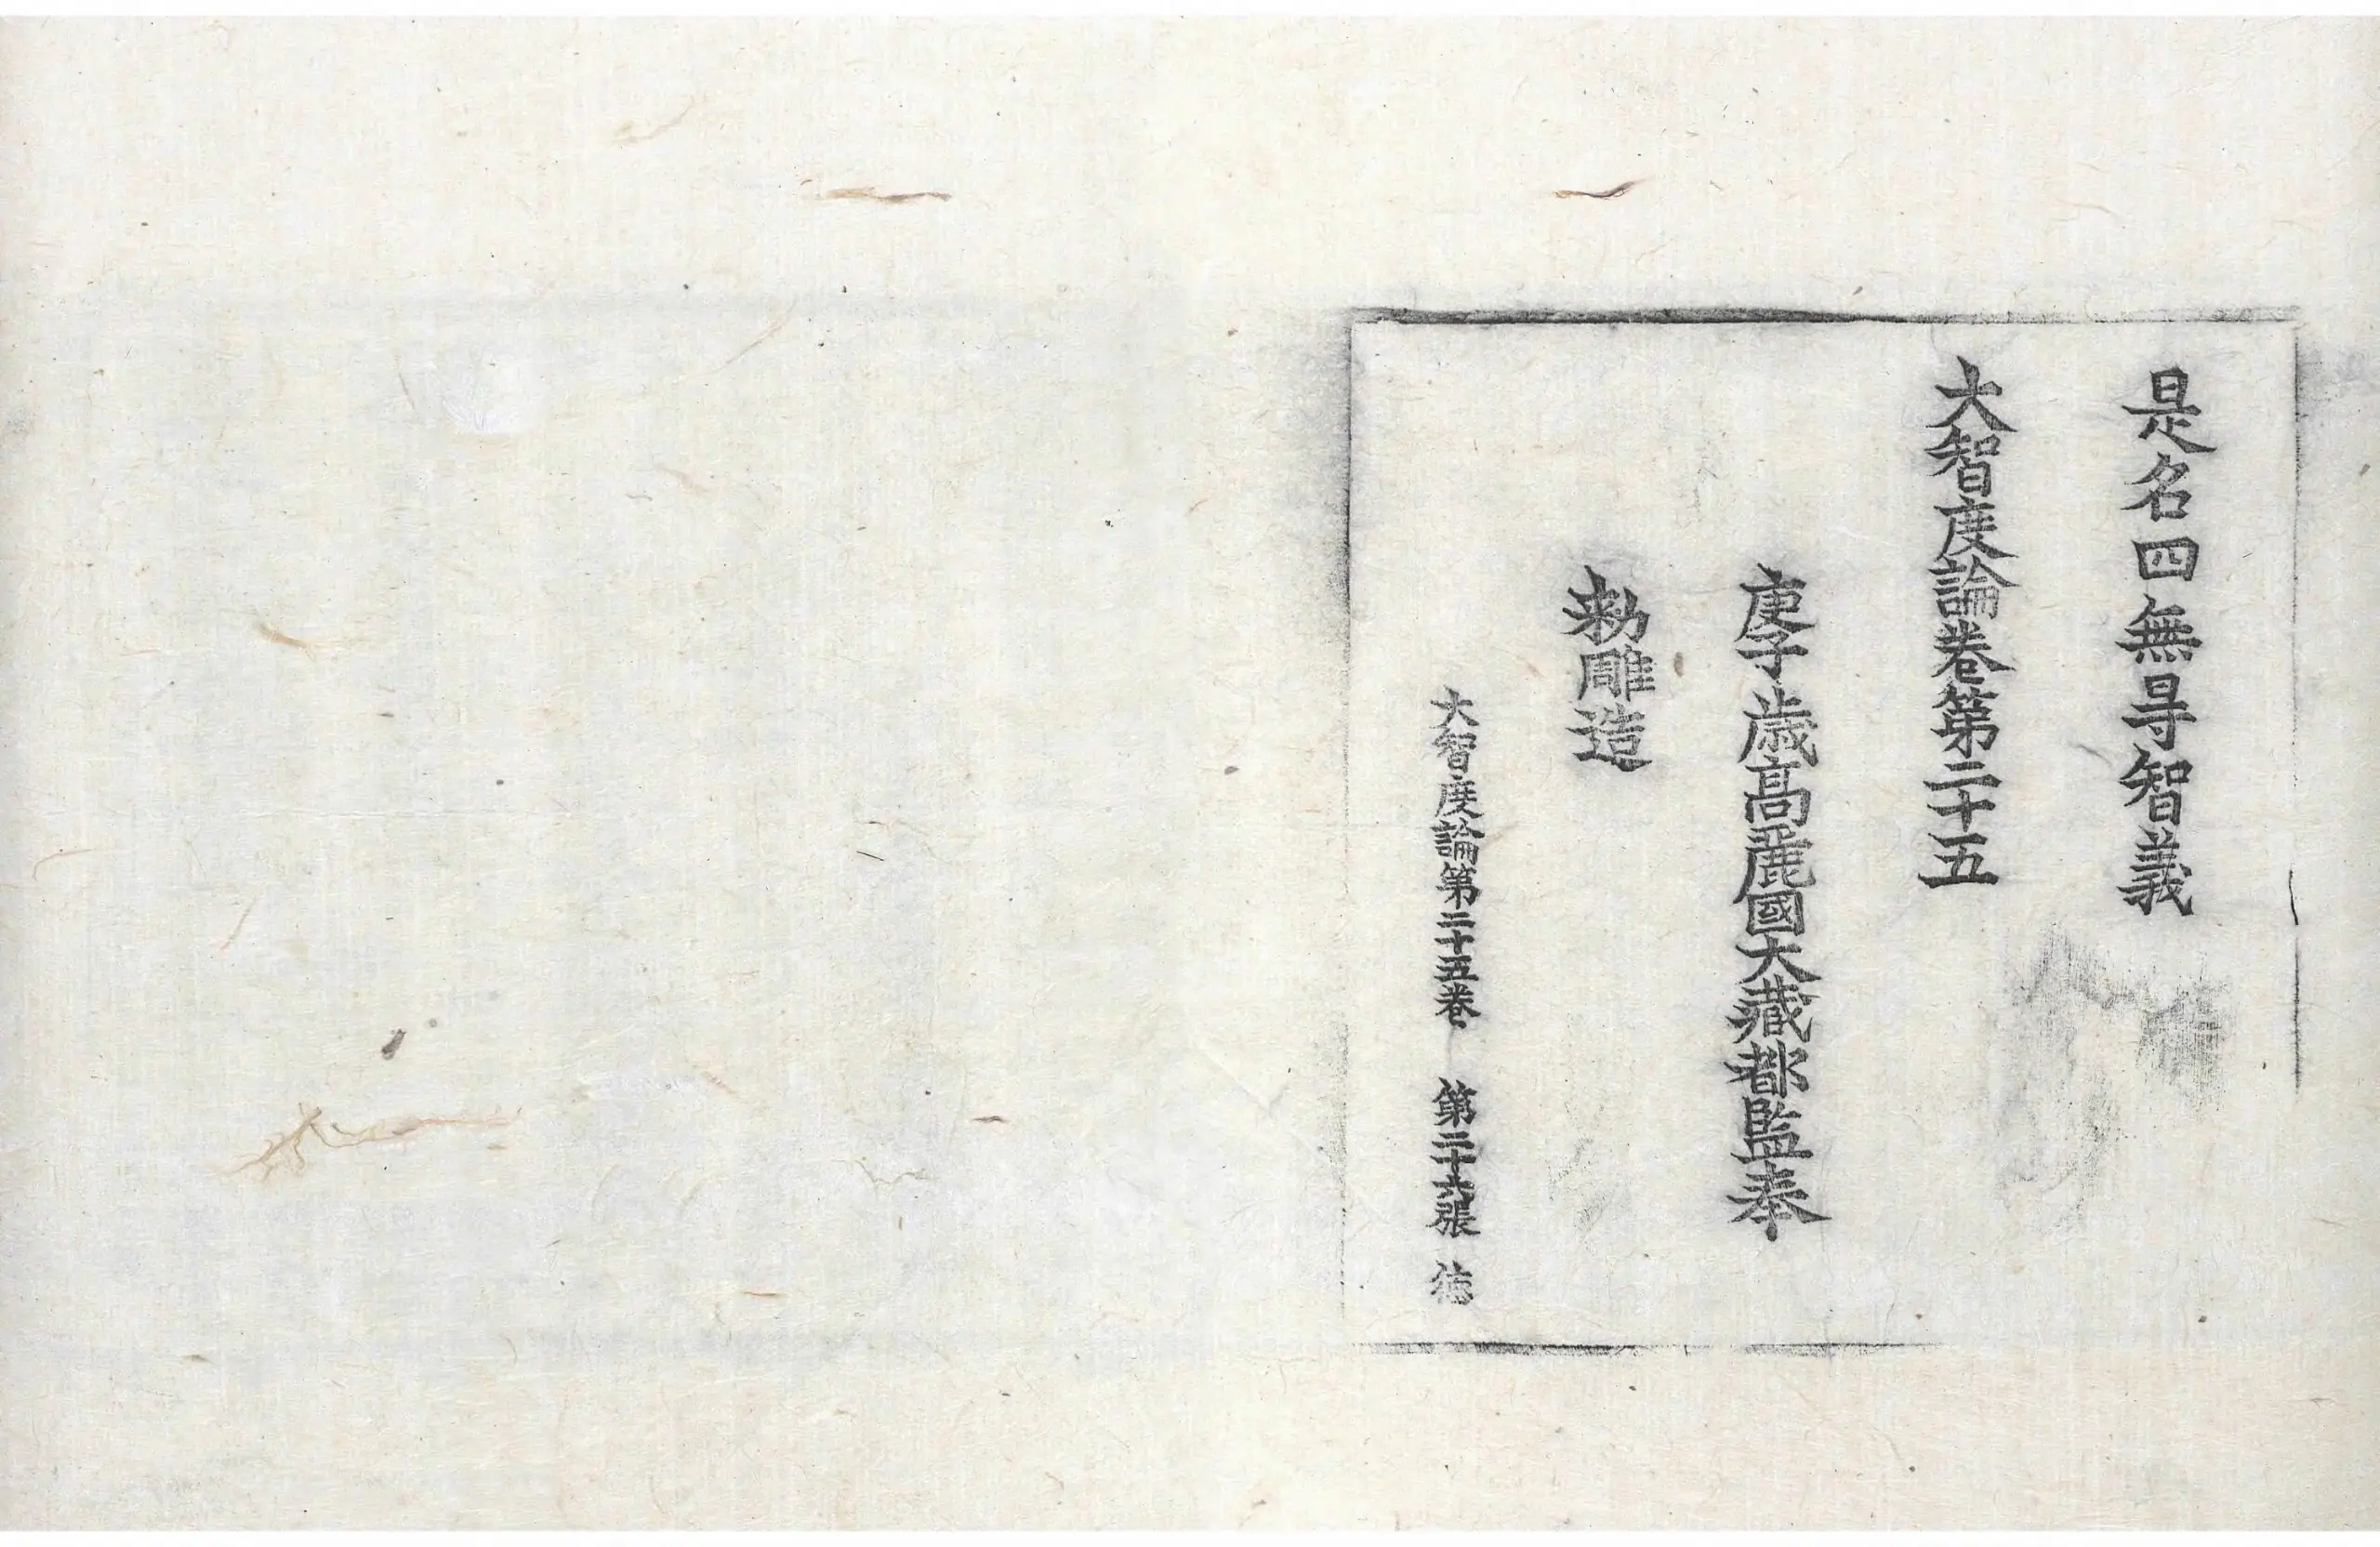 是名四無㝵智義
大智度論卷第二十五
庚子歲高麗國大藏都監奉
勅雕造
大智度論第二十五卷　第二十六張